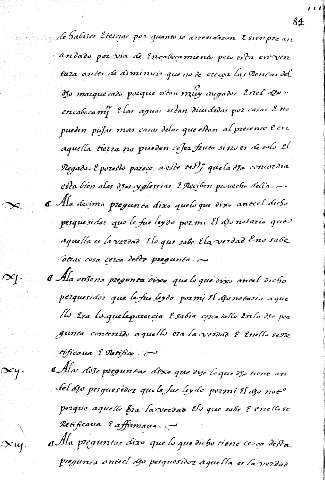 84
de habises E tierras por quanto se arrendaran E siempre an
andado por via de Encabezamiento pero esta en ven
tura antes de diminuir que no de crecer las Rentas del
dho marquesado porque estan muy cargados En el dho
encabezamyº E las aguas estan divididas por casas E no
pueden pujar mas casas delas que estan al presente E en
aquella tierra no pueden cojer fruto sino es de solo el
Regadio E por esto parece a este tº que la dha concordia
esta bien alas dhas yglesias E Reciben provecho della
X. A la decima pregunta dixo que lo que dixo antel dicho
perquesidor que le fue leydo por mi El dho notario que
aquella es la verdad E lo que sabe E la verdad E no sabe
otra cosa cerca desta pregunta
XI. A la onzena pregunta dixo que lo que dixo antel dicho
perquesidor que le fue leydo por mi El dho notario aque
llo Era lo que le parecia E sabia cerca dello En la dha pre
gunta contenido aquello era la verdad E enello se Re
tificava E Retifico
XII. A las doze preguntas dixo que dize lo que dho tiene an
tel dho perquesidor que le fue leydo por mi El dho notº
porque aquello Era la verdad E lo que sabe E enello se
Retificava E affirmava
XIII. A la preguntas dixo que lo que dicho tiene cerca desta
pregunta antel dho perquesidor aquella es la verdad